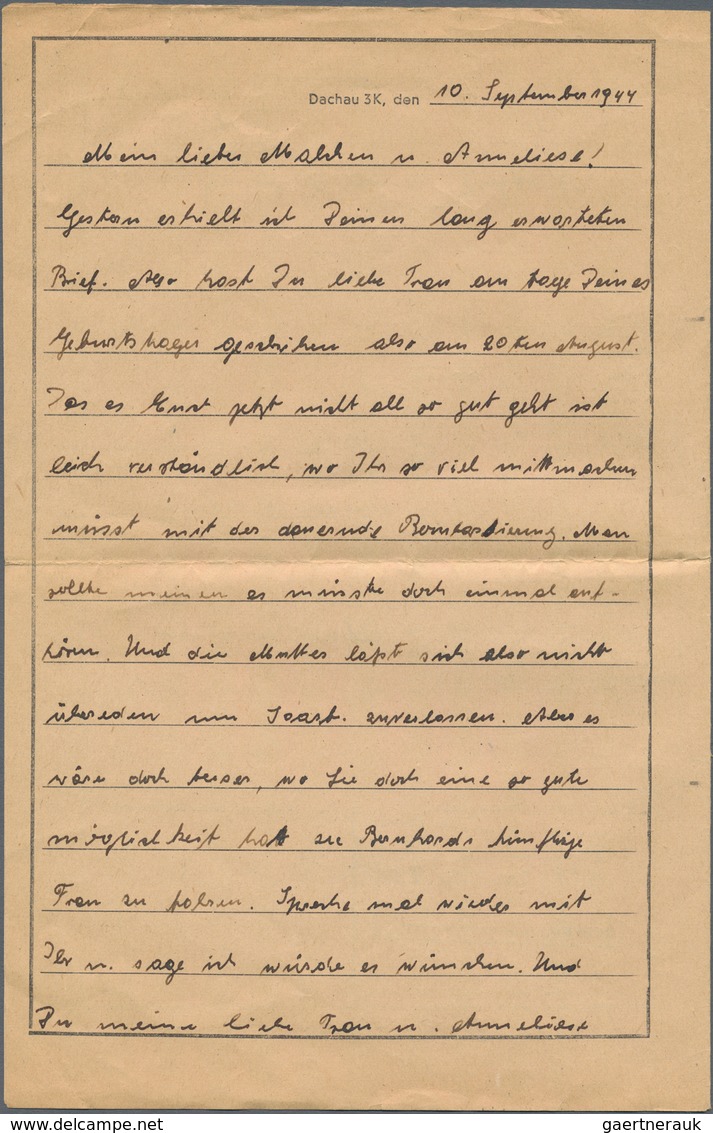 Dachau 3K, den 10. September 1944
Mein liebes Malchen u. Anneliese!
Gestern erhielt ich Deinen lang erwarteten
Brief. Also hast Du liebe Frau am tage Deines
Geburtstages geschriben also am 20ten August.
Das es Euch jetzt nicht all so gut geht ist
leich verständlich, wo Ihr so viel mittmachen
müsst mit der dauernde Bombardierung. Man
sollte meinen es müsste doch einmal auf-
hören. Und die Mutter läßt sich also nicht
überreden um Saarb. zuverlassen. Aber es
wäre doch besser, wo Sie doch eine so gute
möglichkeit hat zu Bernhards künftige
Frau zu fahren. Spreche mal wieder mit
Ihr u. sage ich würde es wünschen. Und
Du meine liebe Frau u. Anneliese
gaertnerauk